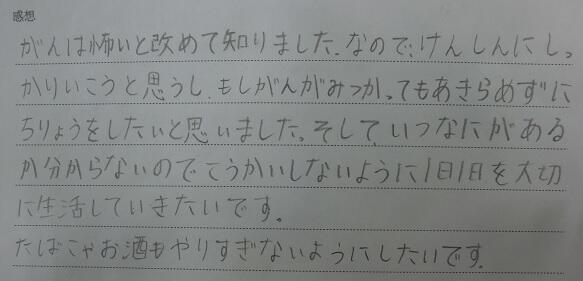 感想
がんは怖いと改めて知りました。なので、けんしんにしっ
かりいこうと思うし、もしがんがみつかってもあきらめずに
ちりょうをしたいと思いました。そして、いつなにがある
か分からないのでこうかいしないように1日1日を大切
に生活していきたいです。
たばこやお酒もやりすぎないようにしたいです。